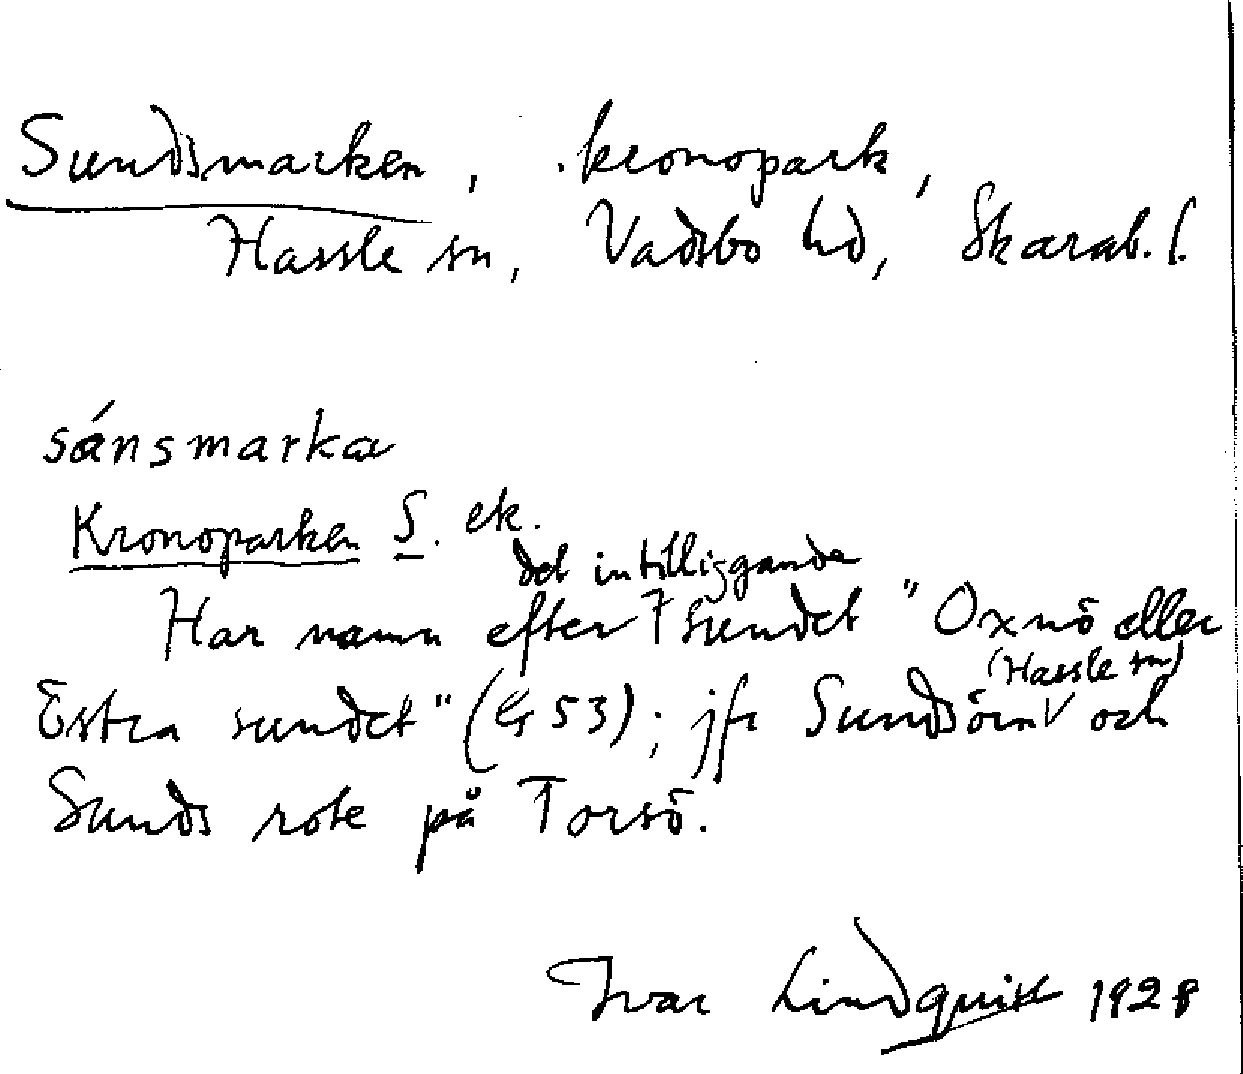 Sundsmarken, kronopark,
Hassle sn, Vadsbo hd, Skarab. l.
sánsmarka
Kronoparken S. ek.
det intilliggande
Har namn efter sundet "Oxnö eller
(Hassle sn)
Östra sundet" (G 53); jfr Sundsörn och
Sunds rote på Torsö.
Ivar Lindquist 1928